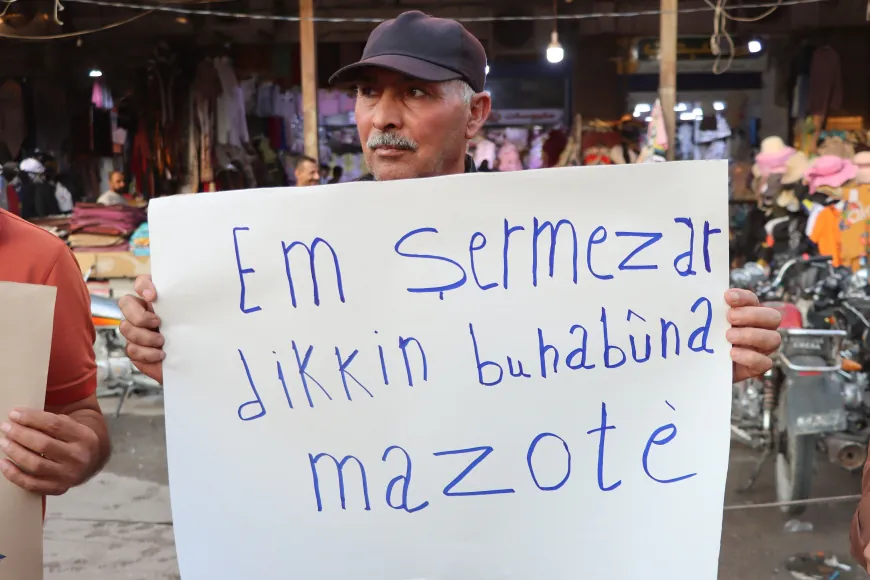 Em Şermezar
dikkin buhabûna
mazotè